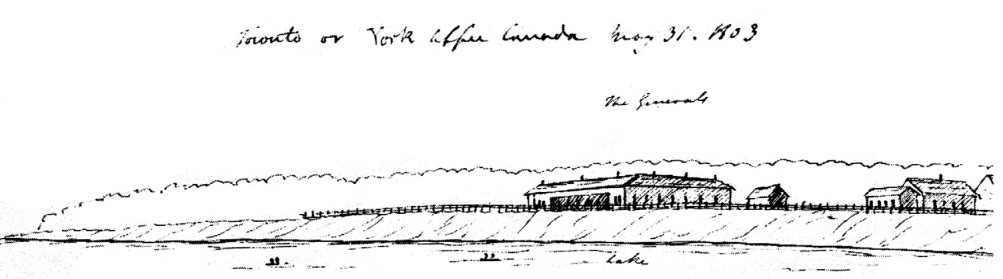 Toronto or York Upper Canada May 31. 1803
The Generals
Lake